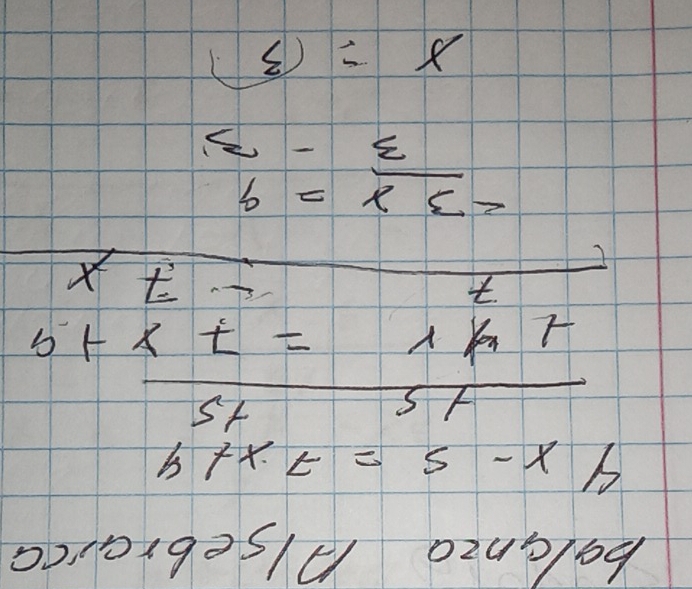 balanza Algebraica
4 x - 5 = 7 x + 4
+5 +5
= 7 x + 9
7 - 7 x
- 3 x = 9
3 - 3
x = (3)